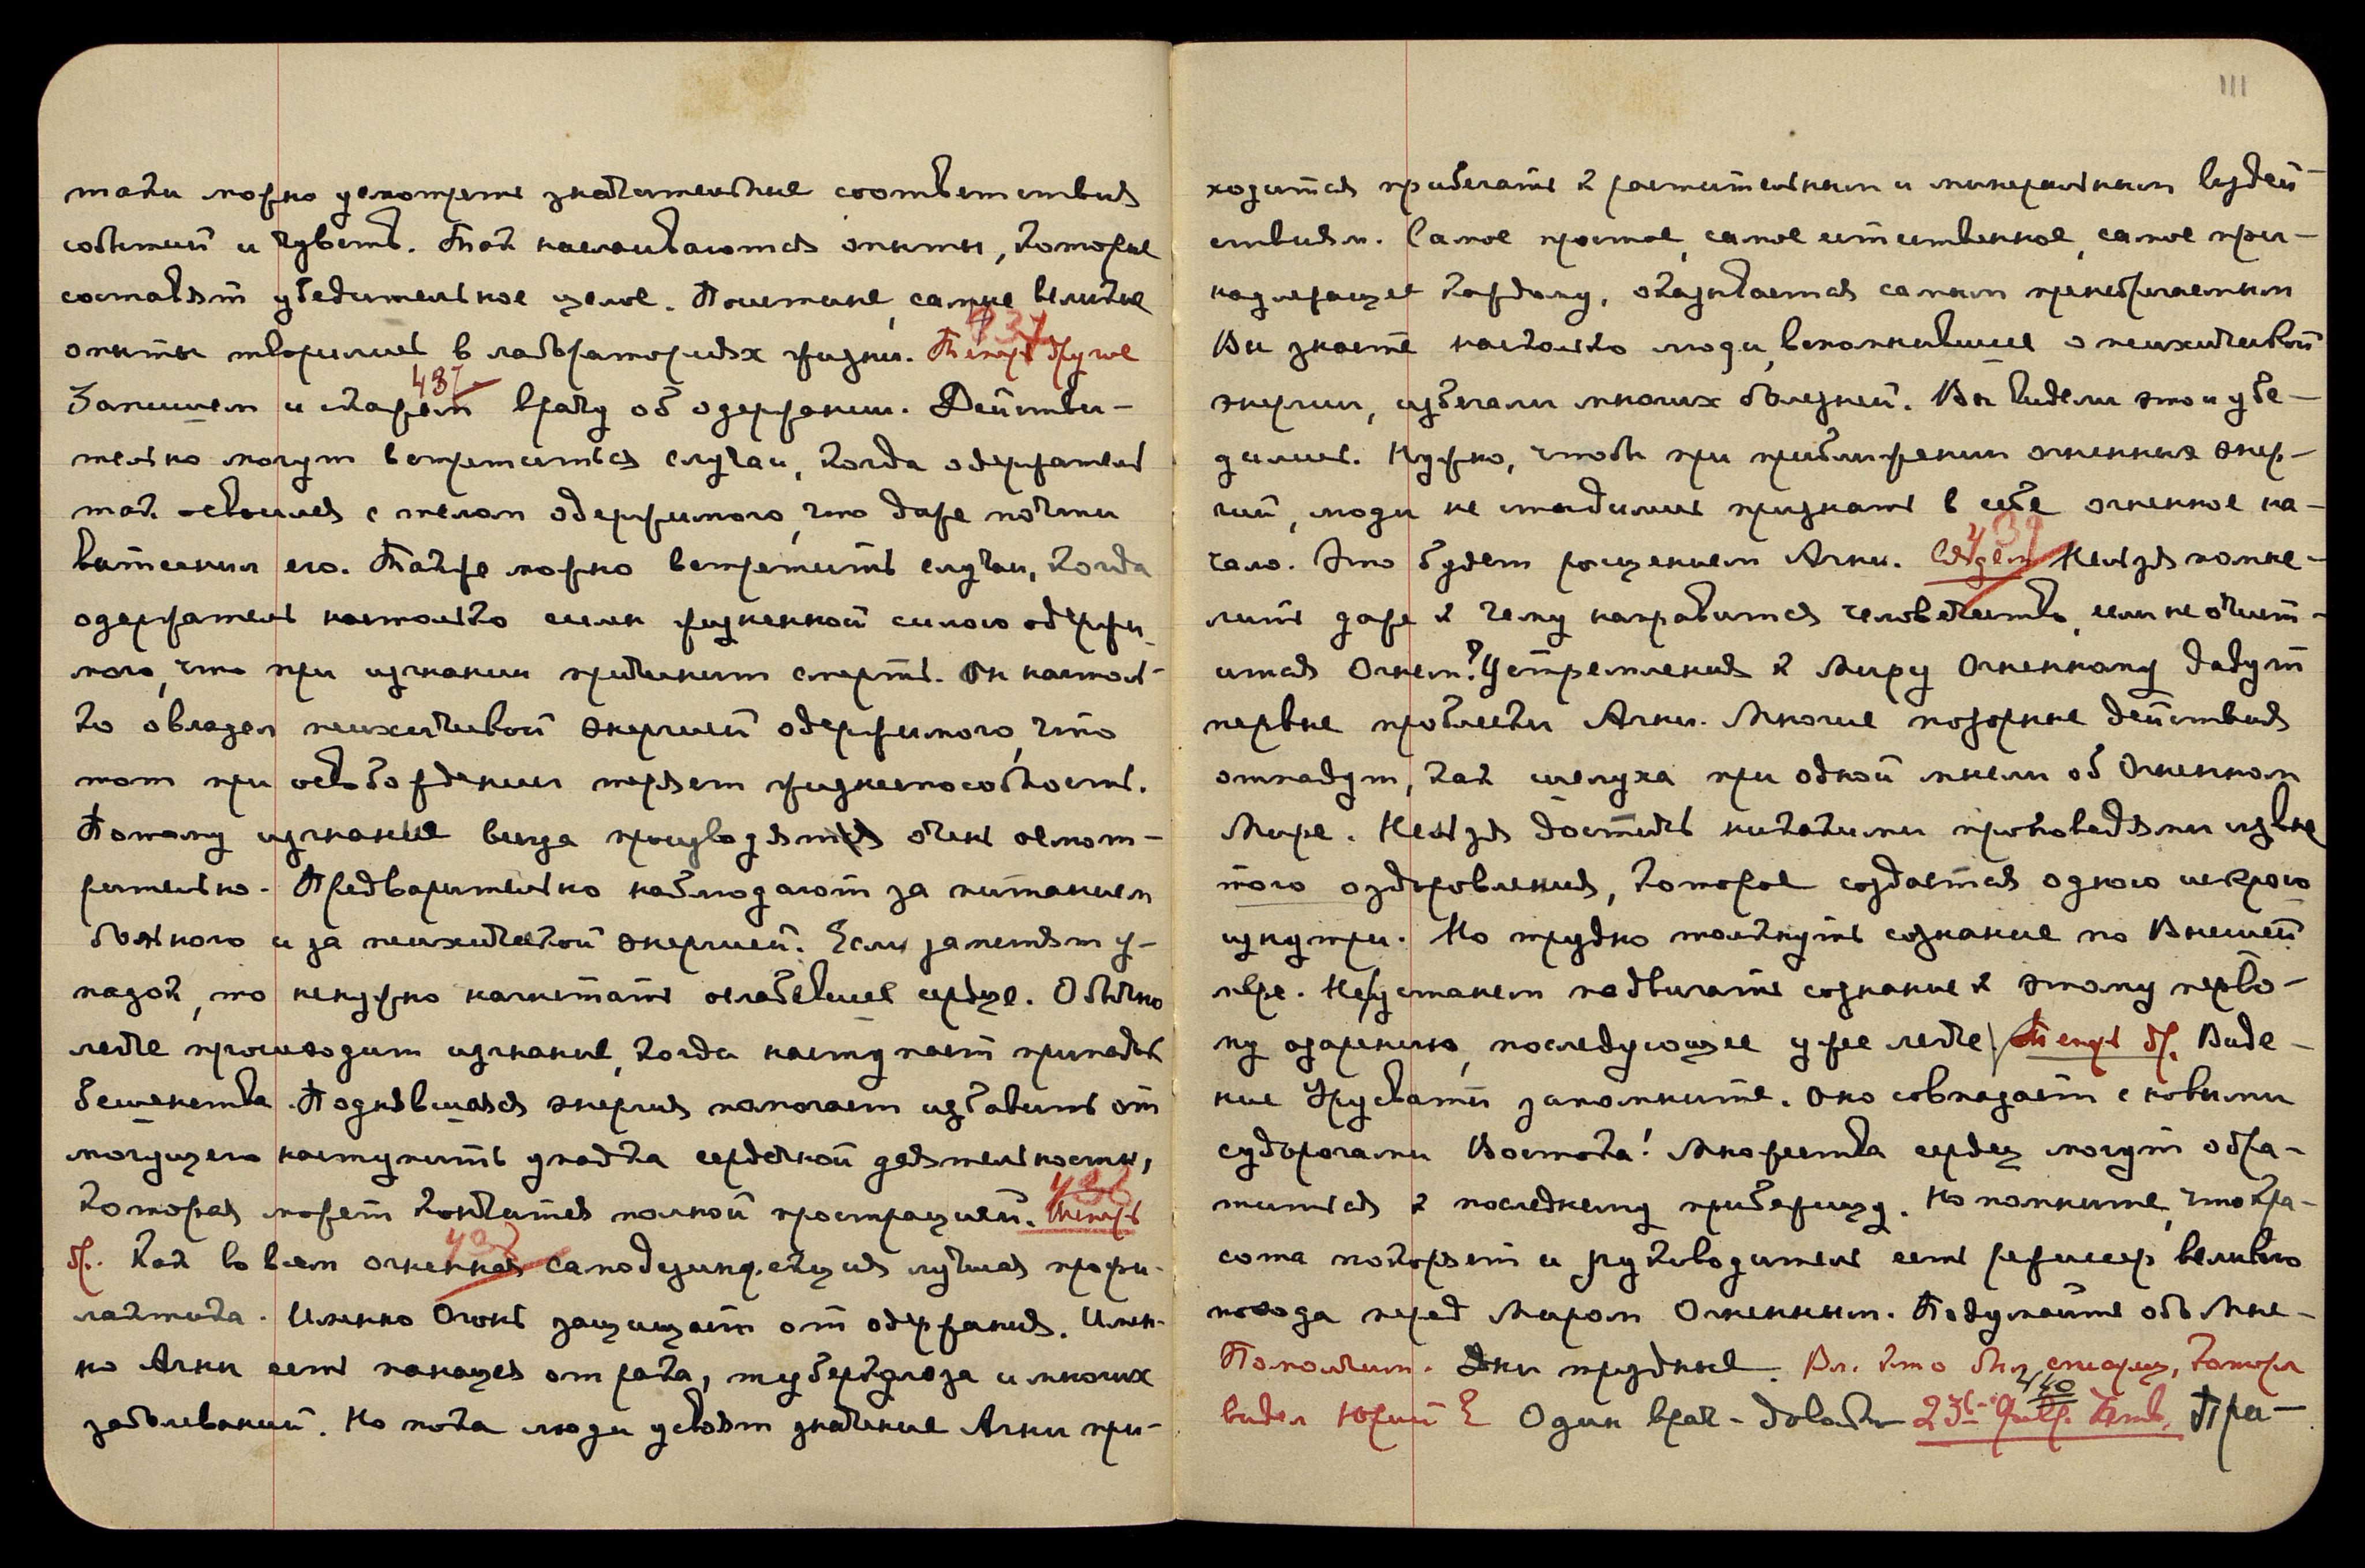 таки можно усмотреть значительные соответствия
событий и чувств. Так наслаиваются опыты, которые
составят убедительное целое. Поистине, самые великие
опыты творились в лабораториях жизни. Теперь другое
437
437
Запишем и скажем врачу об одержании. Действи-
тельно могут встретиться случаи, когда одержатель
так освоился с телом одержимого, что даже почти
вытеснил его. Также можно встретить случаи, когда
одержатель настолько силен жизненной силою одержи-
мого, что при изгнании причинит смерть. Он настоль-
ко овладел психической энергией одержимого, что
тот при освобождении теряет жизнеспособность.
Потому изгнание всегда производятся очень осмот-
рительно. Предварительно наблюдают за питанием
больного и за психической энергией. Если заметят у-
падок, то ненужно нагнетать ослабевшее сердце. Обычно
легче производит изгнание, когда наступает припадок
бешенства. Поднявшаяся энергия помогает избавить от
могущего наступить упадка сердечной деятельности,
которая может кончиться полной прострацией. Теперь
438
др. Как во всем огненная самодезинфекция лучшая профи-
лактика. Именно Огонь защищает от одержания. Имен-
но Агни есть панацея от рака, туберкулоза и многих
заболеваний. Но пока люди усвоят значение Агни при-
111
ходится прибегать к растительным и минеральным воздей-
ствиям. Самое простое, самое естественное, самое при-
надлежащее каждому, оказывается самым пренебрегаемым
Вы знаете насколько люди, вспомнившие о психической
энергии, избегали многих болезней. Вы видели это и убе-
дились. Нужно, чтобы при приближении огненных энер-
гий, люди не стыдились признать в себе огненное на-
чало. Это будет рощением Агни. Сядем Нельзя помыс-
439
лить даже к чему направится человечество, если не очист-
ится Огнем? Устремления к Миру Огненному дадут
первые проблески Агни. Многие позорные действия
отпадут, как шелуха при одной мысли об Огненном
Мире. Нельзя достичь никакими проповедями извне
того оздоровления, которое создается одною искрою
изнутри. Но трудно толкнуть сознание по Высшей
мере. Не устанем подвигать сознание к этому перво-
му озарению, последующее уже легче. Теперь др. Виде-
ние Урусвати запомните. Оно совпадает с новыми
судорогами Востока! Множества сердец могут обра-
титься к последнему прибежищу. Но помните, что кра-
сота покоряет и руководитель есть режиссер великого
похода перед Миром Огненным. Подумайте обо Мне-
Помолчим. Дни трудные. Вл. кто был старец, котор.
видел Юрий? Один врач-
440
При-